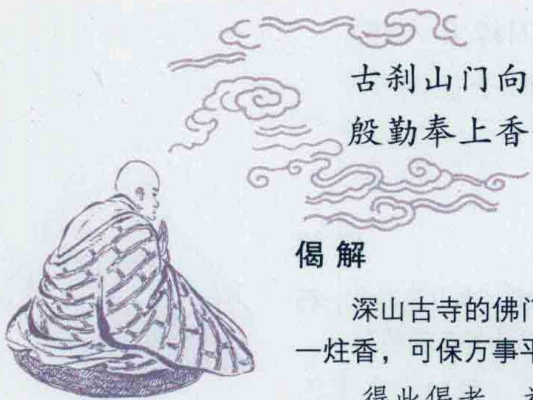 古刹山门向
殷勤奉上香
偈解
深山古寺的佛门
一炷香，可保万事平
得此偈者